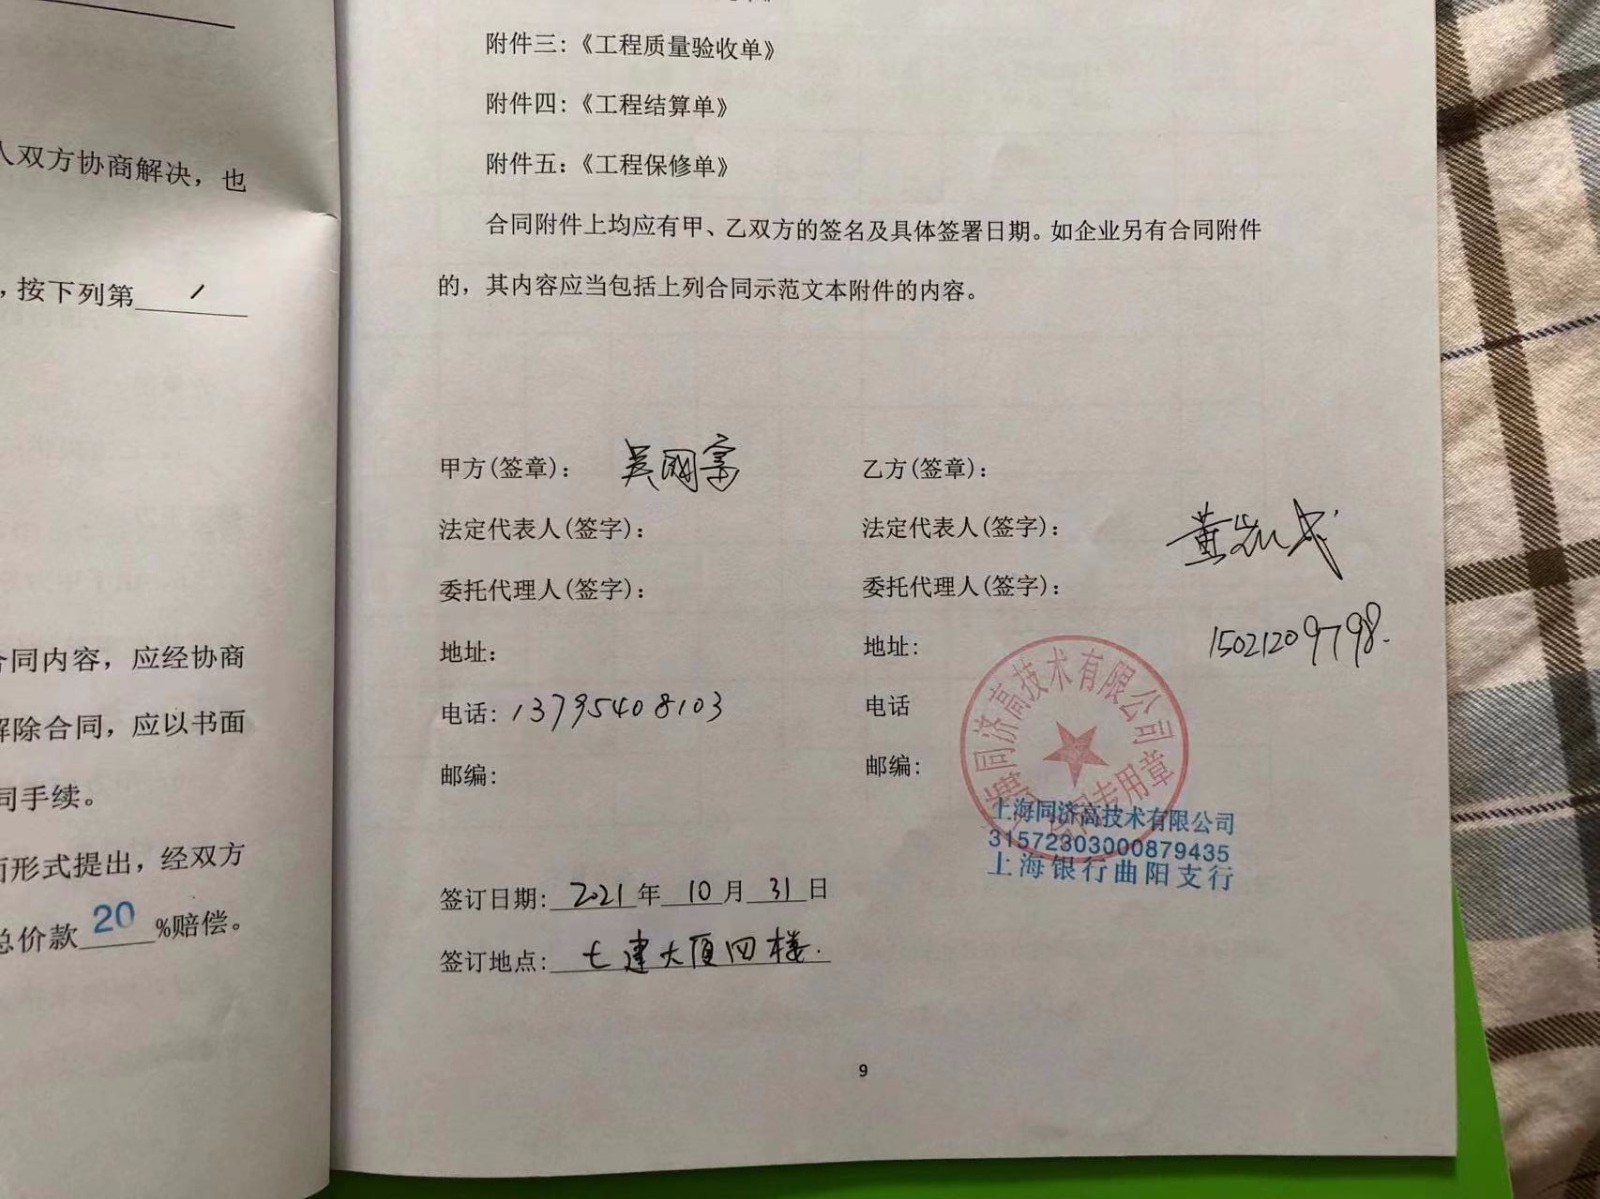 人双方协商解决，也
，按下列第 /
合同内容，应经协商
解除合同，应以书面
同手续。
面形式提出，经双方
总价款20%赔偿。
附件三：《工程质量验收单》
附件四：《工程结算单》
附件五：《工程保修单》
合同附件上均应有甲、乙双方的签名及具体签署日期。如企业另有合同附件
的，其内容应当包括上列合同示范文本附件的内容。
甲方(签章)： 吴国富
法定代表人(签字)：
委托代理人(签字)：
地址：
电话: 13795408103
邮编:
乙方(签章)：
法定代表人(签字)：
黄
委托代理人(签字)：
地址:
15021209798.
电话
邮编:
上海同济高技术有限公司
合同专用章
上海同济高技术有限公司
31572303000879435
上海银行曲阳支行
签订日期: 2021年 10月 31日
签订地点: 七建大厦四楼.
9